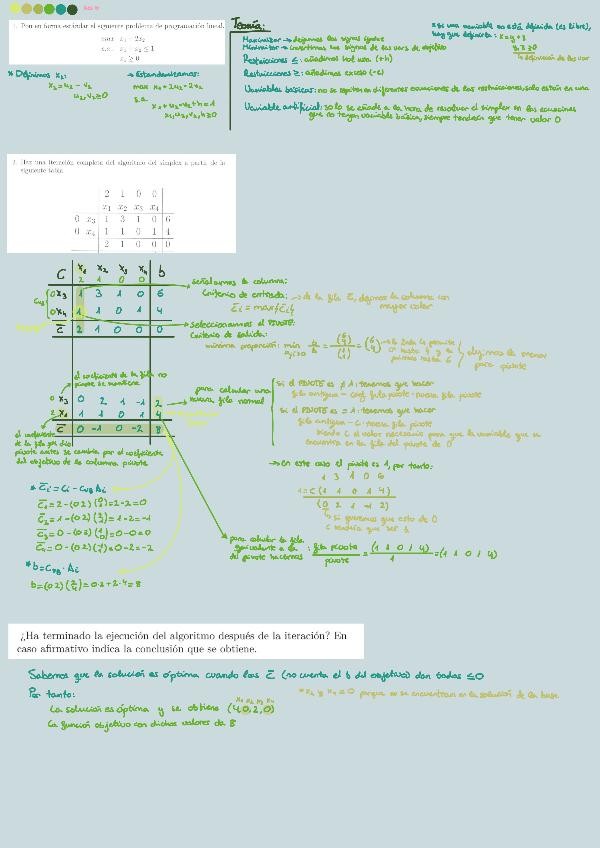 1. Pon en forma estándar el siguiente problema de programación lineal.
max x1 − 2x2
s.a. x1 − x2 ≤ 1
x1 ≥ 0
Teoría:
Maximizar → dejamos los signos iguales
Minimizar → invertimos los signos de las vars de objetivo
Restricciones ≤ : añadimos hol ura (+h)
Restricciones ≥ : añadimos exceso (-e)
Variables básicas: no se repiten en diferentes ecuaciones de las restricciones, solo están en una
Variable artificial: solo se añade a la hora de resolver el simplex en las ecuaciones
que no tengan variable básica, siempre tendrán que tener valor 0
* si una variable no está definida (es libre),
hay que definirla : x = y - z
y, z ≥ 0
→ definición de las var
* Definimos x2:
x2 = u2 - v2
u2, v2 ≥ 0
→ Estandarizamos:
max x1 + 2u2 + 2v2
s.a.
x1 + u2 - v2 + h = 1
x1, u2, v2, h ≥ 0
2. Haz una iteración completa del algoritmo del simplex a partir de la
siguiente tabla.
2 1 0 0
x1 x2 x3 x4
0 x3 1 3 1 0 6
0 x4 1 1 0 1 4
2 1 0 0 0
C x1 x2 x3 x4 b
2 1 0 0
0 x3 1 3 1 0 6
0 x4 1 1 0 1 4
C̄ 2 1 0 0 0
señalamos la columna:
Criterio de entrada: → de la fila C̄, elegimos la columna con
mayor valor
C̄i = max{C̄i}
→ seleccionamos el PIVOTE:
Criterio de salida:
mínima proporción: min
elegimos la menor
para pivote
el coeficiente de la fila no
pivote se mantiene
0 x3 0 2 1 -1 2
2 x1 1 1 0 1 4
C̄ 0 -1 0 -2 8
el coeficiente
de la fila que dio
pivote antes se cambia por el coeficiente
del objetivo de la columna pivote
para calcular una
nueva fila normal
si el PIVOTE es ≠ 1: tenemos que hacer
fila antigua - coef. fila pivote · nueva fila pivote
si el PIVOTE es = 1: tenemos que hacer
fila antigua - c · nueva fila pivote
siendo c el valor necesario para que la variable que se
encuentra en la fila del pivote de 0
→ En este caso el pivote es 1, por tanto:
1 3 1 0 6
1=C (1 1 0 1 4)
(0 2 1 -1 2)
→ si queremos que esto de 0
C tendría que ser 1
* C̄i = Ci - CVB Ai
C̄1 = 2 - (0 2) (0 1) = 2-2 = 0
C̄2 = 1 - (0 2) (2 1) = 1-2 = -1
C̄3 = 0 - (0 2) (1 0) = 0-0 = 0
C̄4 = 0 - (0 2) (-1 1) = 0-2 = -2
* b = CVB · Ai
b = (0 2) (2 4) = 0·2 + 2·4 = 8
para calcular la fila
equivalente a la
del pivote hacemos : fila pivote / pivote = (1 1 0 1 4) / 1 = (1 1 0 1 4)
¿Ha terminado la ejecución del algoritmo después de la iteración? En
caso afirmativo indica la conclusión que se obtiene.
Sabemos que la solución es óptima cuando las C̄ (no cuenta el b del objetivo) dan todas ≤ 0
Por tanto:
x1 x2 x3 x4
La solución es óptima y se obtiene (4, 0, 2, 0)
* x2 y x4 = 0 porque no se encuentran en la solución de la base
La función objetivo con dichos valores da 8